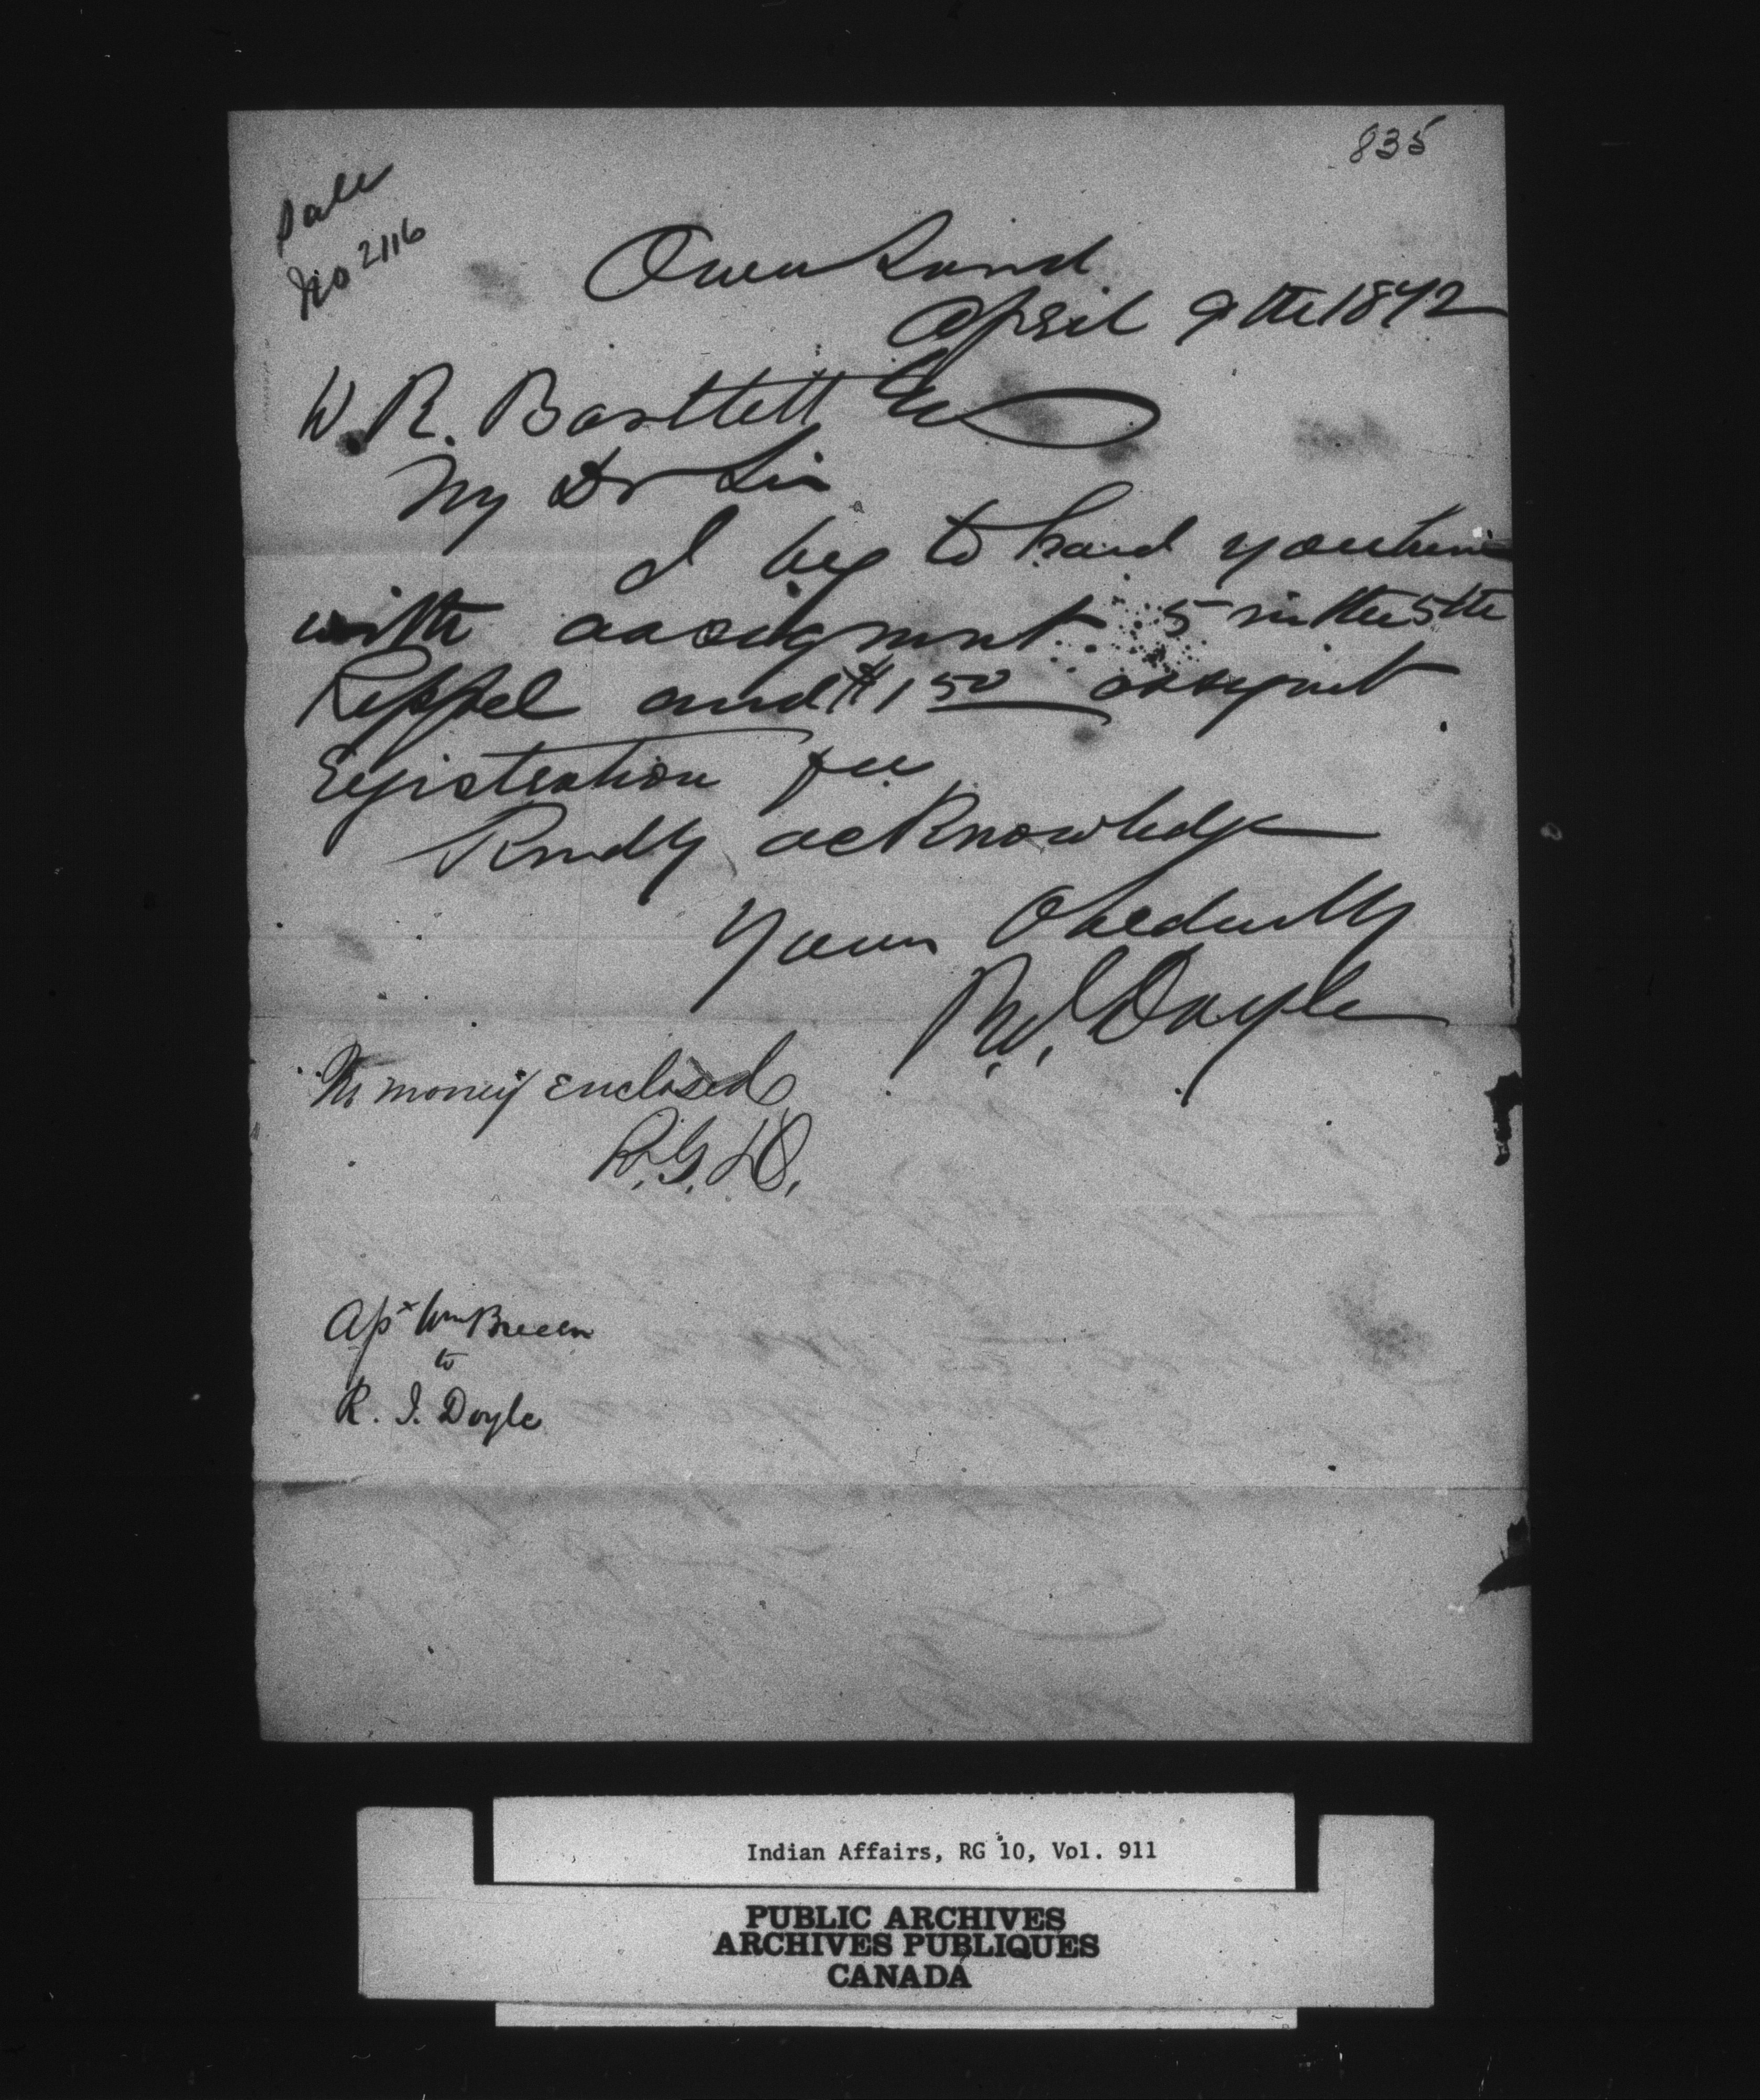 835
Sale
No 2116
Owen Sound
April 9th 1872
W. R. Bartlett Esq
My Dr Sir
I beg to hand you here
with assignment 5 in the 5th
Keppel and $1 50 assignt
Registration fee
Kindly acknowledge
Yours Obediently
R. J. Doyle
No money enclosed
R. G. D.
Wm Breen
to
R. J. Doyle
Indian Affairs, RG 10, Vol. 911
PUBLIC ARCHIVES
ARCHIVES PUBLIQUES
CANADA